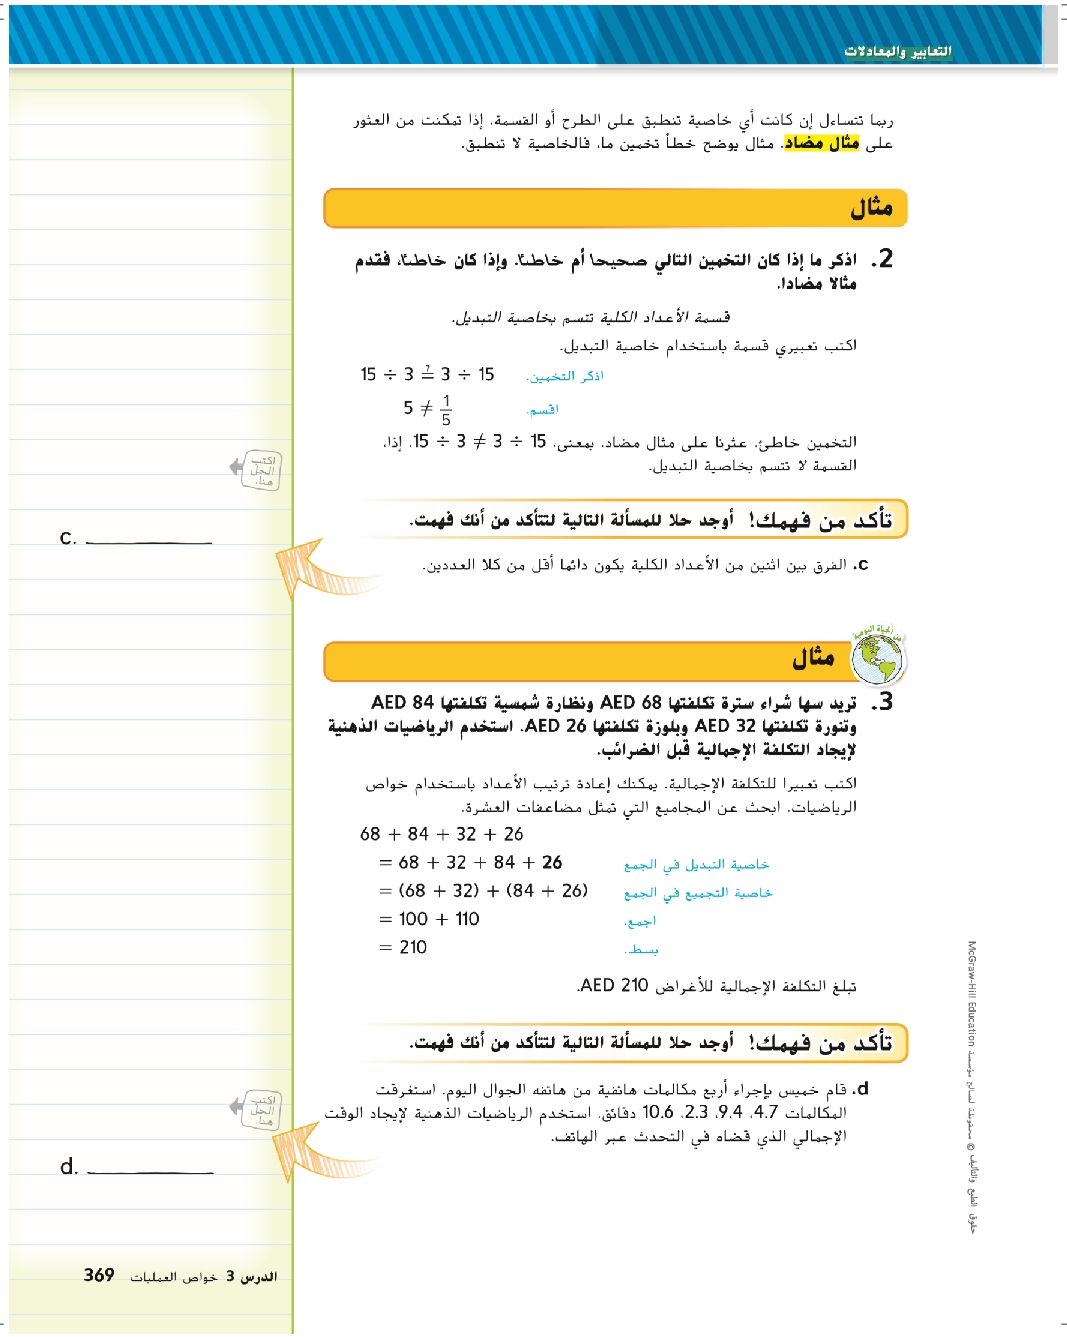 التعابير والمعادلات
ربما تتساءل إن كانت أي خاصية تنطبق على الطرح أو القسمة. إذا تمكنت من العثور
على مثال مضاد، مثال يوضح خطأ تخمين ما، فالخاصية لا تنطبق.
مثال
2. اذكر ما إذا كان التخمين التالي صحيحا أم خاطئا. وإذا كان خاطئا، فقدم
مثالا مضادا.
قسمة الأعداد الكلية تتسم بخاصية التبديل.
اكتب تعبيري قسمة باستخدام خاصية التبديل.
15 ÷ 3 ≟ 3 ÷ 15 اذكر التخمين.
5 ≠ 1/5 اقسم.
التخمين خاطئ. عثرنا على مثال مضاد. بمعنى، 15 ÷ 3 ≠ 3 ÷ 15. إذا،
القسمة لا تتسم بخاصية التبديل.
اكتب
الحل
هنا.
تأكد من فهمك! أوجد حلا للمسألة التالية لتتأكد من أنك فهمت.
c. الفرق بين اثنين من الأعداد الكلية يكون دائما أقل من كلا العددين.
c. ____________
من الحياة اليومية
مثال
3. تريد سها شراء سترة تكلفتها AED 68 ونظارة شمسية تكلفتها AED 84
وتنورة تكلفتها AED 32 وبلوزة تكلفتها AED 26. استخدم الرياضيات الذهنية
لإيجاد التكلفة الإجمالية قبل الضرائب.
اكتب تعبيرا للتكلفة الإجمالية. يمكنك إعادة ترتيب الأعداد باستخدام خواص
الرياضيات. ابحث عن المجاميع التي تمثل مضاعفات العشرة.
68 + 84 + 32 + 26
= 68 + 32 + 84 + 26 خاصية التبديل في الجمع
= (68 + 32) + (84 + 26) خاصية التجميع في الجمع
= 100 + 110 اجمع.
= 210 بسط.
تبلغ التكلفة الإجمالية للأغراض AED 210.
تأكد من فهمك! أوجد حلا للمسألة التالية لتتأكد من أنك فهمت.
d. قام خميس بإجراء أربع مكالمات هاتفية من هاتفه الجوال اليوم. استغرقت
المكالمات 4.7، 9.4، 2.3، 10.6 دقائق. استخدم الرياضيات الذهنية لإيجاد الوقت
الإجمالي الذي قضاه في التحدث عبر الهاتف.
اكتب
الحل
هنا.
d. ____________
حقوق الطبع والتأليف © محفوظة لصالح مؤسسة McGraw-Hill Education
الدرس 3 خواص العمليات 369